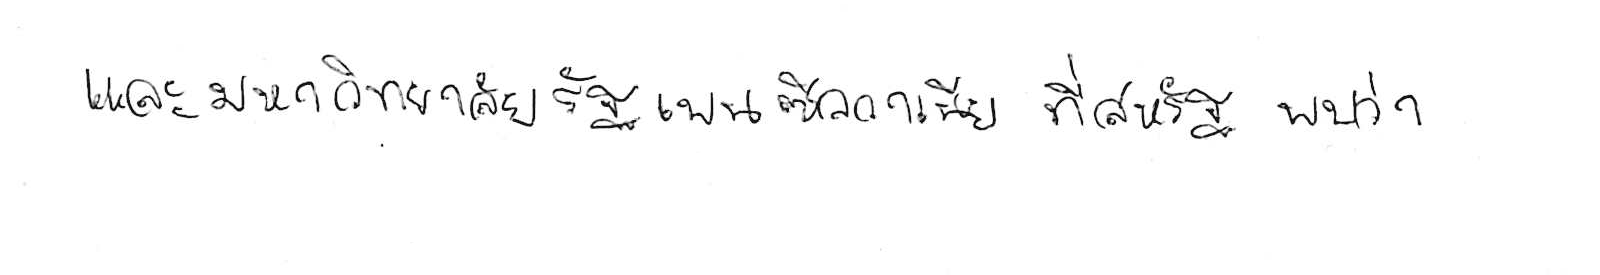 และมหาวิทยาลัยรัฐเพนซีลวาเนีย ที่สหรัฐ พบว่า